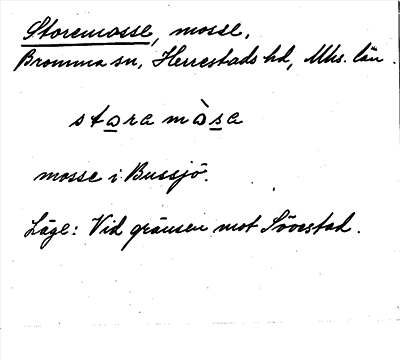 Storemosse, mosse,
Bromma sn, Herrestads hd, Mhs. län.
stora mòsa
mosse i Bussjö.
Läge: Vid gränsen mot Sövestad.